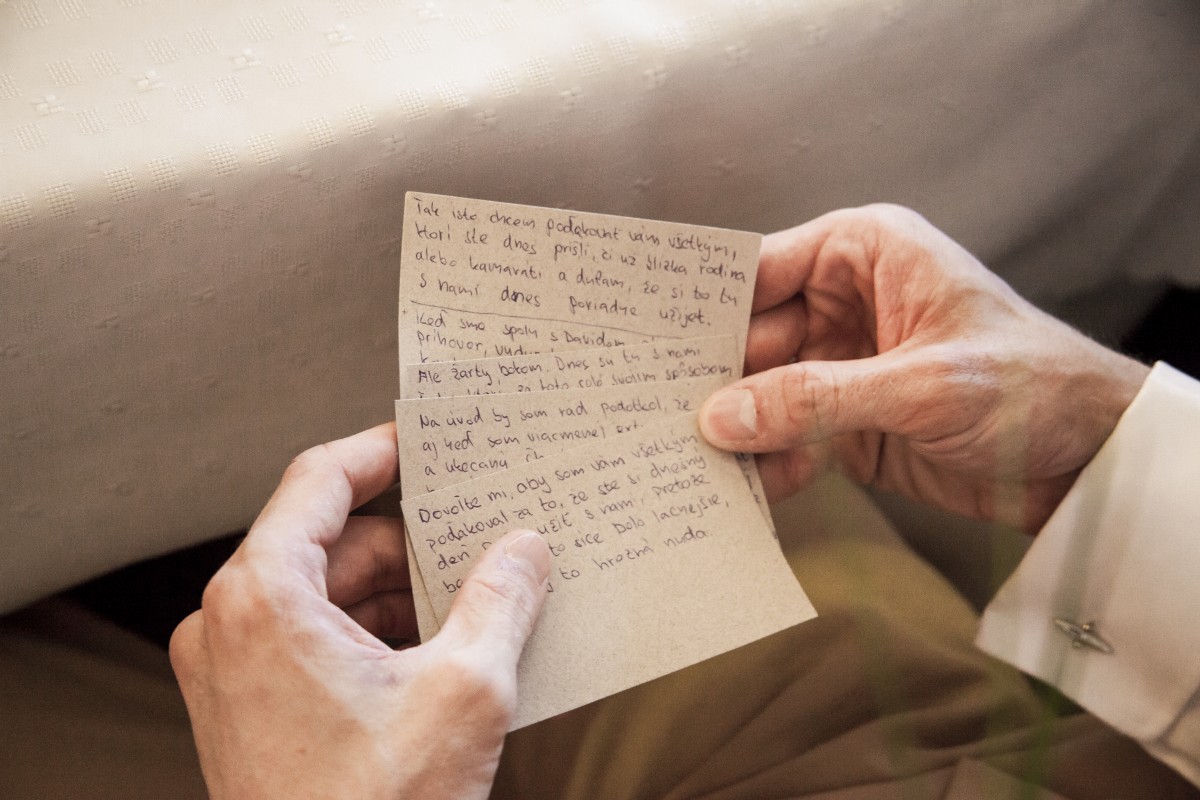 Tak iste chcem poďakovať vám všetkým,
ktorí ste dnes prišli, či už blízka rodina
alebo kamaráti a dúfam, že si to tu
s nami dnes poriadne užijet.
Keď sme spolu s Davidom
príhovor,
Ale žarty bokom. Dnes sú tu s nami
za túto rolu svojim spôsobom
Na úvod by som rád podotkol, že
aj keď som viacmenej
a ukecaný
Dovoľte mi, aby som vám všetkým
poďakoval za to, že ste si dnešný
deň užiť s nami, pretože
to síce bolo lacnejšie,
to hrozná nuda.